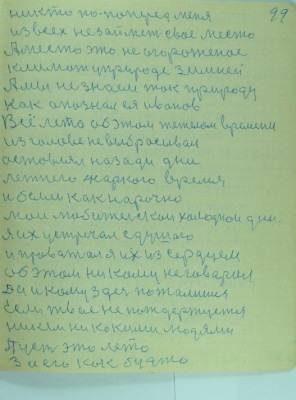 99
никто по-поперед меня
из всех не займет свое место
А место это не огороженое
климат и природе зимней
А мы не знаем так природу
как опознал ея иванов
Всё лето об этом тяжелом времени
из головы не выбрасывал
оставлял назади дни
летнего жаркого время
и были как нарочно
мои любительскои холоднои дни.
Я их устречал с душого
и проважал я их из сердцем
об этом никому не говарил
Да и кому здесь пожалишся
Если твое не поддержуется
никем никокими людями
Пусть это лето
за его как будто